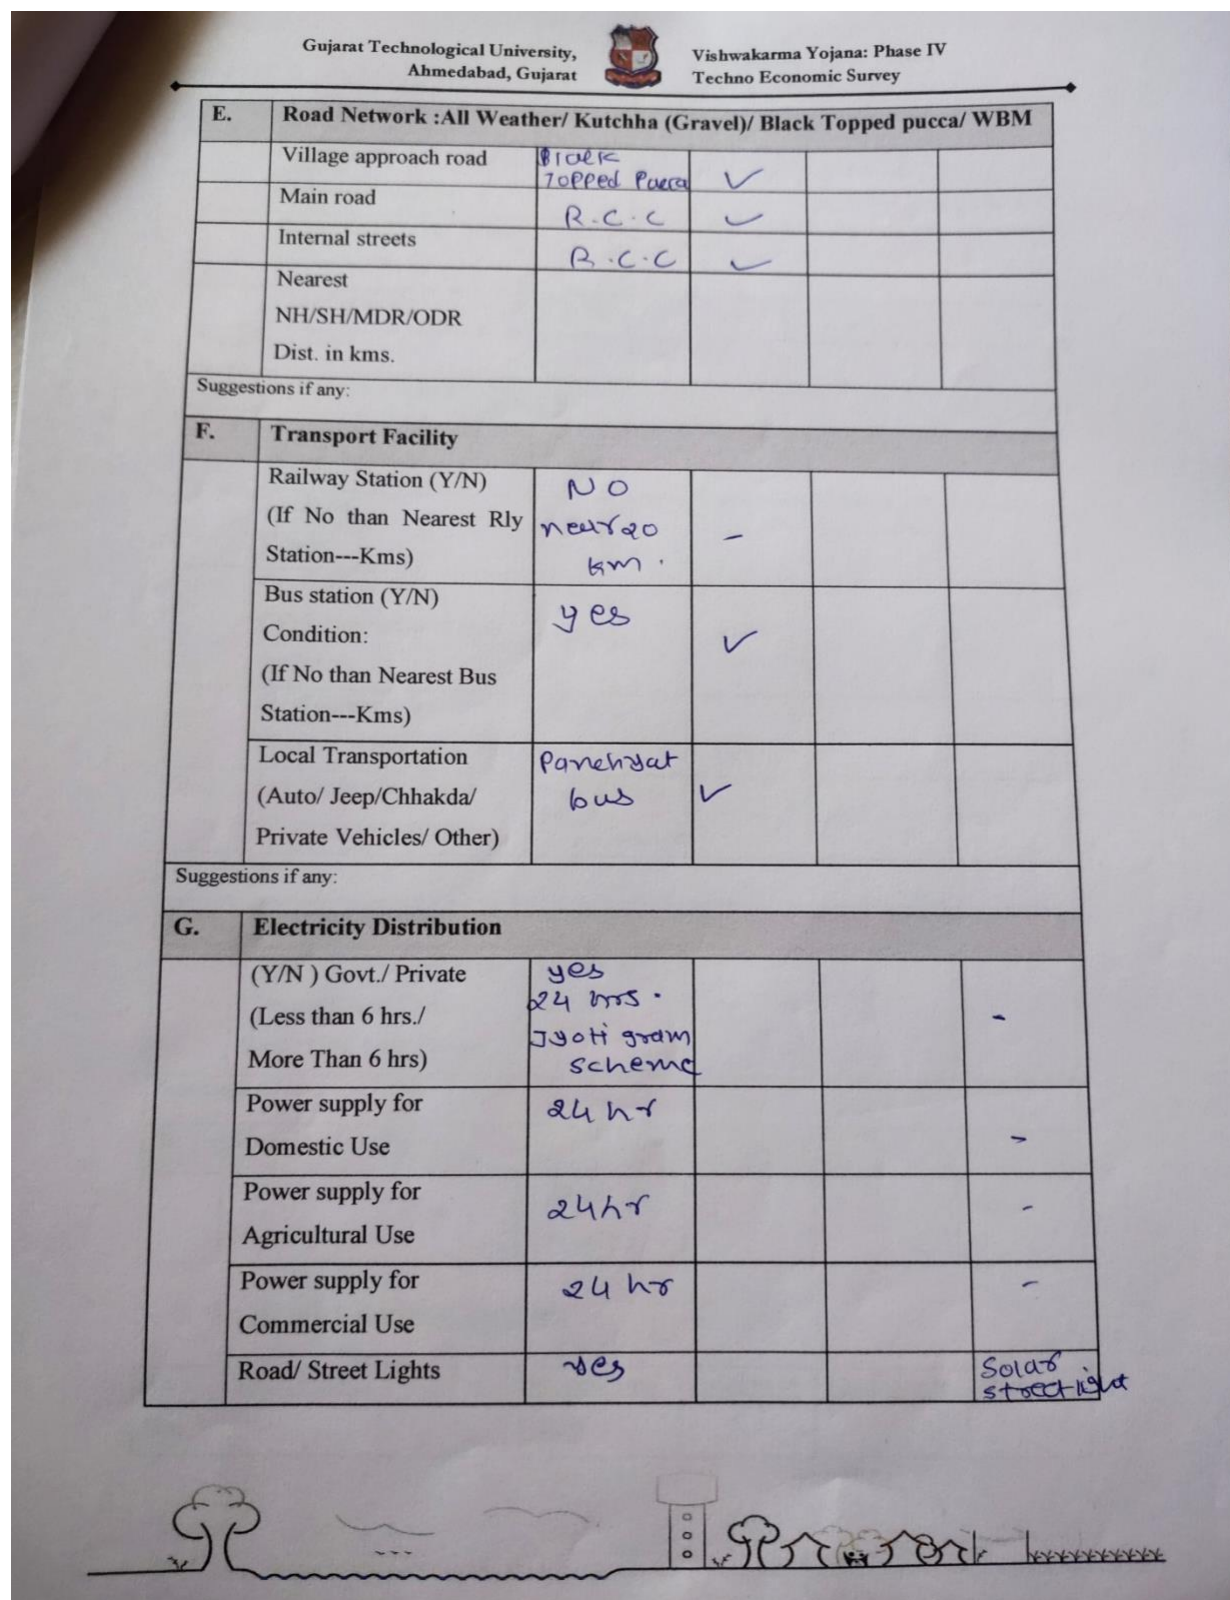 Gujarat Technological University,
Ahmedabad, Gujarat
Vishwakarma Yojana: Phase IV
Techno Economic Survey
E. Road Network :All Weather/ Kutchha (Gravel)/ Black Topped pucca/ WBM
Village approach road Black
Topped Pucca ✓
Main road R.C.C ✓
Internal streets R.C.C ✓
Nearest
NH/SH/MDR/ODR
Dist. in kms.
Suggestions if any:
F. Transport Facility
Railway Station (Y/N) NO
(If No than Nearest Rly near 20 -
Station---Kms) km.
Bus station (Y/N) yes
Condition: ✓
(If No than Nearest Bus
Station---Kms)
Local Transportation Panchyat
(Auto/ Jeep/Chhakda/ bus ✓
Private Vehicles/ Other)
Suggestions if any:
G. Electricity Distribution
(Y/N ) Govt./ Private yes
24 hrs.
(Less than 6 hrs./ -
Jyoti gram
More Than 6 hrs) scheme
Power supply for 24 hr
Domestic Use -
Power supply for 24 hr -
Agricultural Use
Power supply for 24 hr -
Commercial Use
Road/ Street Lights yes Solar
street light